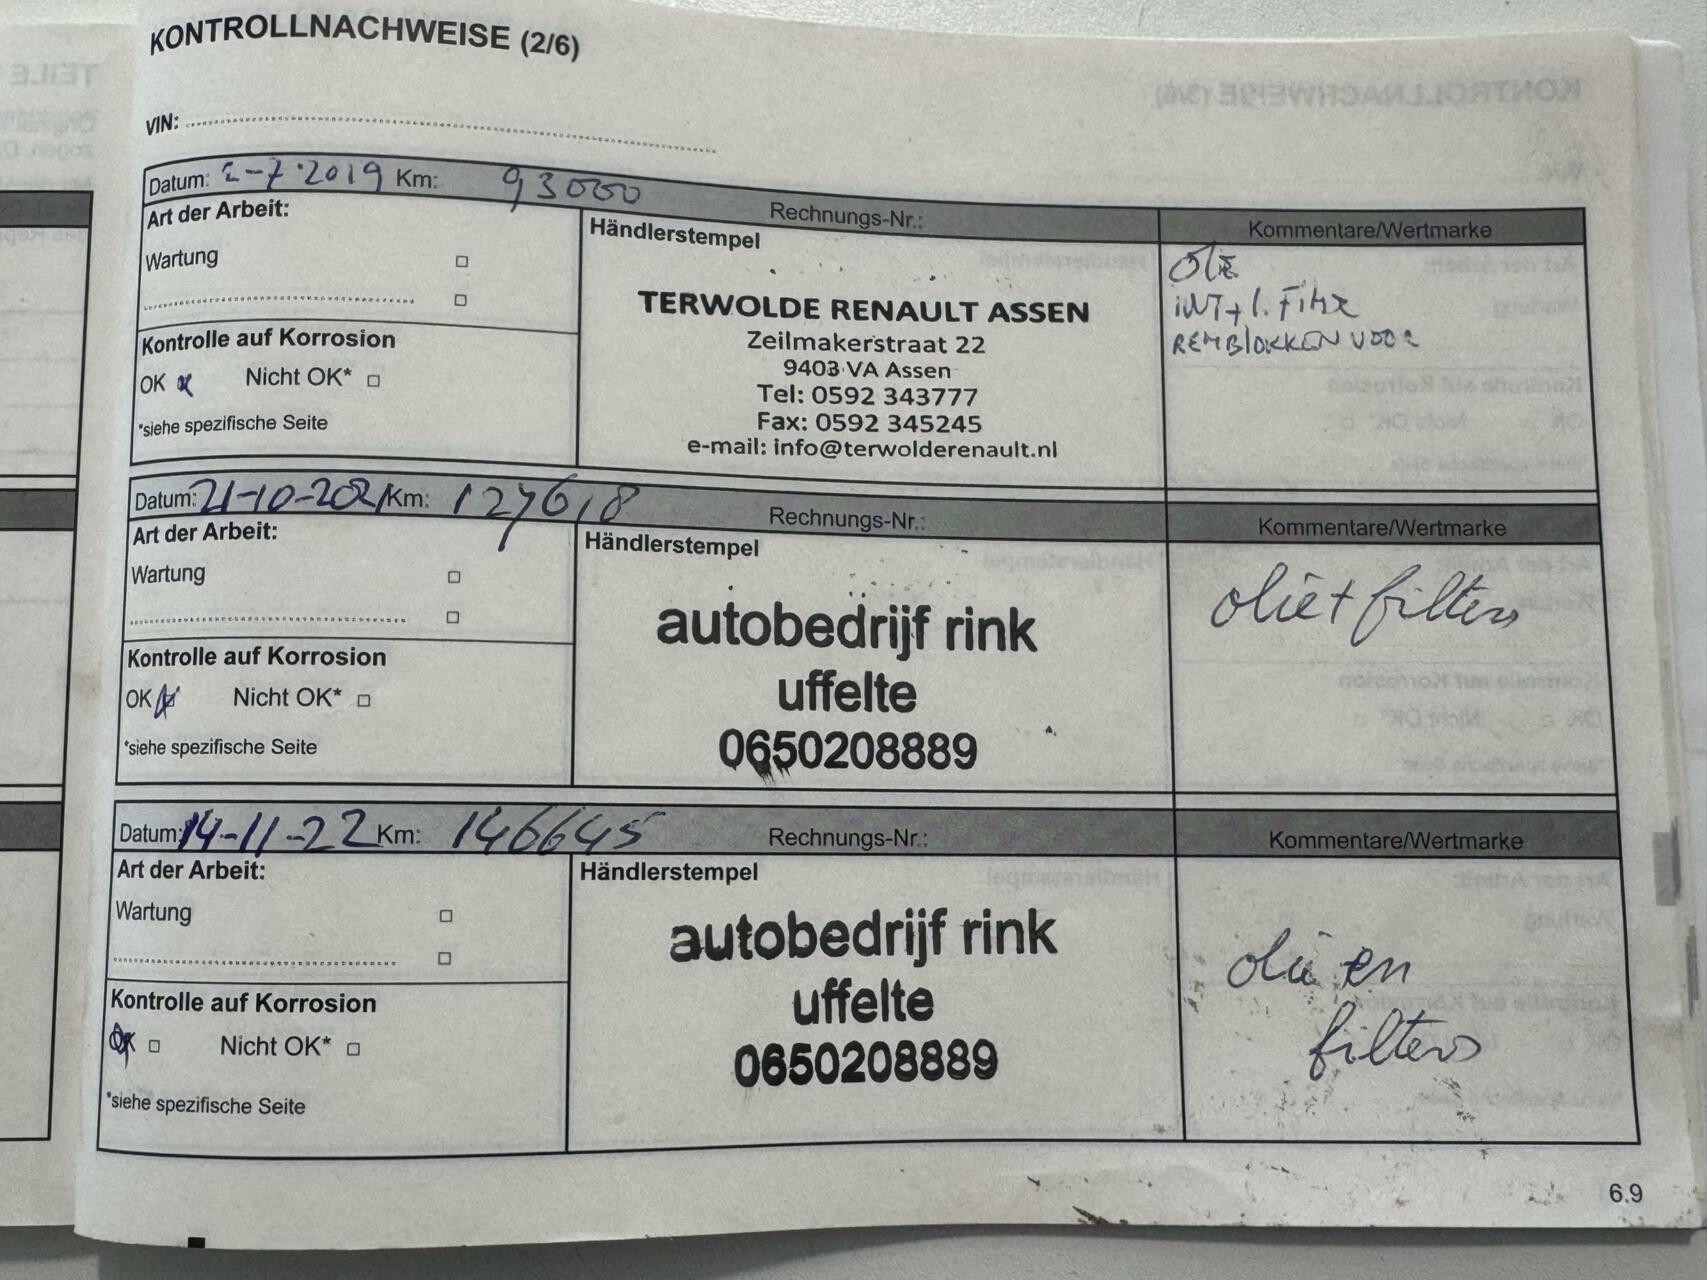 KONTROLLNACHWEISE (2/6)
VIN:
Datum: 2-7-2019 Km: 93000 Rechnungs-Nr.: Kommentare/Wertmarke
Art der Arbeit:
Wartung
Kontrolle auf Korrosion
OK Nicht OK*
*siehe spezifische Seite
Händlerstempel
TERWOLDE RENAULT ASSEN
Zeilmakerstraat 22
9403 VA Assen
Tel: 0592 343777
Fax: 0592 345245
e-mail: info@terwolderenault.nl
OLIE
INT + I.
REMBLOKKEN VOOR
Datum: 21-10-2021 Km: 127618 Rechnungs-Nr.: Kommentare/Wertmarke
Art der Arbeit:
Wartung
Kontrolle auf Korrosion
OK Nicht OK*
*siehe spezifische Seite
Händlerstempel
autobedrijf rink
uffelte
0650208889
olie + filters
Datum: 14-11-22 Km: 146645 Rechnungs-Nr.: Kommentare/Wertmarke
Art der Arbeit:
Wartung
Kontrolle auf Korrosion
OK Nicht OK*
*siehe spezifische Seite
Händlerstempel
autobedrijf rink
uffelte
0650208889
olie en
filters
6.9